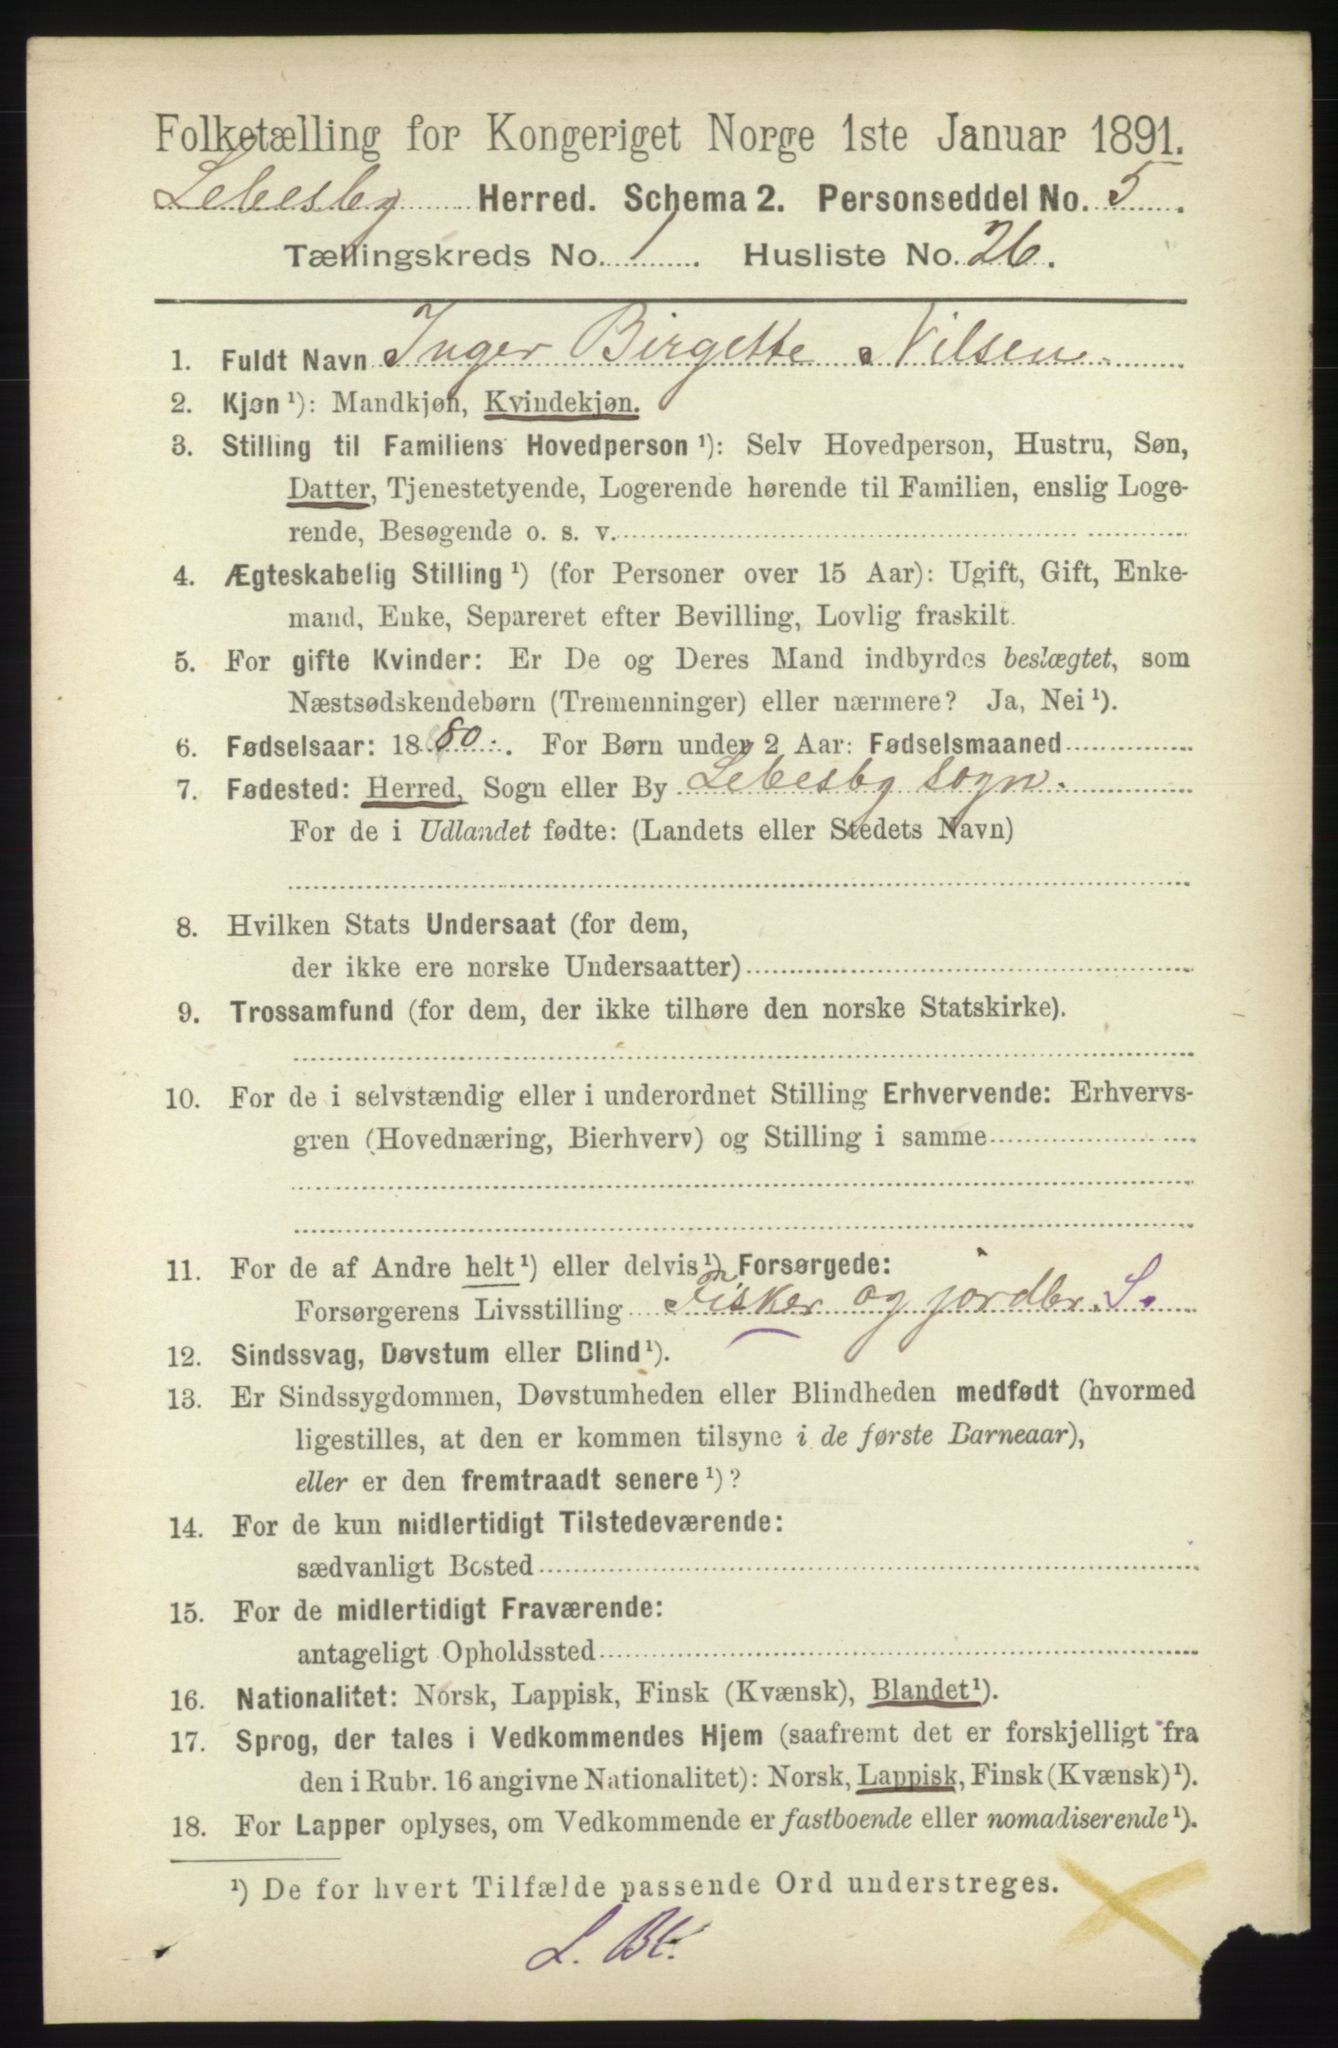 Folketælling for Kongeriget Norge 1ste Januar 1891.
Lebesby Herred. Schema 2. Personseddel No. 5.
Tællingskreds No. 1. Husliste No. 26.
1. Fuldt Navn Inger Birgette Nilsen.
2. Kjøn ¹): Mandkjøn, Kvindekjøn.
3. Stilling til Familiens Hovedperson ¹): Selv Hovedperson, Hustru, Søn,
Datter, Tjenestetyende, Logerende hørende til Familien, enslig Loge-
rende, Besøgende o. s. v.
4. Ægteskabelig Stilling ¹) (for Personer over 15 Aar): Ugift, Gift, Enke-
mand, Enke, Separeret efter Bevilling, Lovlig fraskilt.
5. For gifte Kvinder: Er De og Deres Mand indbyrdes beslægtet, som
Næstsødskendebørn (Tremenninger) eller nærmere? Ja, Nei ¹).
6. Fødselsaar: 1880. For Børn under 2 Aar: Fødselsmaaned
7. Fødested: Herred, Sogn eller By Lebesby sogn.
For de i Udlandet fødte: (Landets eller Stedets Navn)
8. Hvilken Stats Undersaat (for dem,
der ikke ere norske Undersaatter)
9. Trossamfund (for dem, der ikke tilhøre den norske Statskirke).
10. For de i selvstændig eller i underordnet Stilling Erhvervende: Erhvervs-
gren (Hovednæring, Bierhverv) og Stilling i samme
11. For de af Andre helt ¹) eller delvis ¹) Forsørgede:
Forsørgerens Livsstilling Fisker og jordbr. S.
12. Sindssvag, Døvstum eller Blind ¹).
13. Er Sindssygdommen, Døvstumheden eller Blindheden medfødt (hvormed
ligestilles, at den er kommen tilsyne i de første Barneaar),
eller er den fremtraadt senere ¹)?
14. For de kun midlertidigt Tilstedeværende:
sædvanligt Bosted
15. For de midlertidigt Fraværende:
antageligt Opholdssted
16. Nationalitet: Norsk, Lappisk, Finsk (Kvænsk), Blandet ¹).
17. Sprog, der tales i Vedkommendes Hjem (saafremt det er forskjelligt fra
den i Rubr. 16 angivne Nationalitet): Norsk, Lappisk, Finsk (Kvænsk) ¹).
18. For Lapper oplyses, om Vedkommende er fastboende eller nomadiserende ¹).
¹) De for hvert Tilfælde passende Ord understreges.
L. Bl.